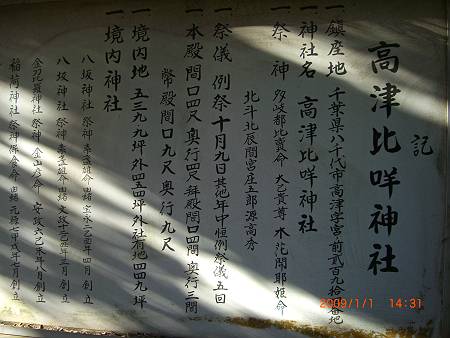 記
高津比咩神社
一 鎮座地 千葉県八千代市高津字宮前貳百九拾番地
一 神社名 高津比咩神社
一 祭神 多岐都比賣命 大己貴尊 木花開耶姫命
北斗北辰間宮庄五郎源高秀
一 祭儀 例祭十月九日其他年中恒例祭儀五回
一 本殿間口四尺奥行四尺拜殿間口四間奥行三間
幣殿間口九尺奥行九尺
一 境内地 五三九九坪外四五四坪外社有地四四九坪
一 境内神社
八坂神社 祭神
八坂神社 祭神
金刀羅神社 祭神 金山彦命 安政六己未年八月創立
稲荷神社 祭神 保食命 由緒 元禄七甲戌年二月創立
2009/1/1 14:31